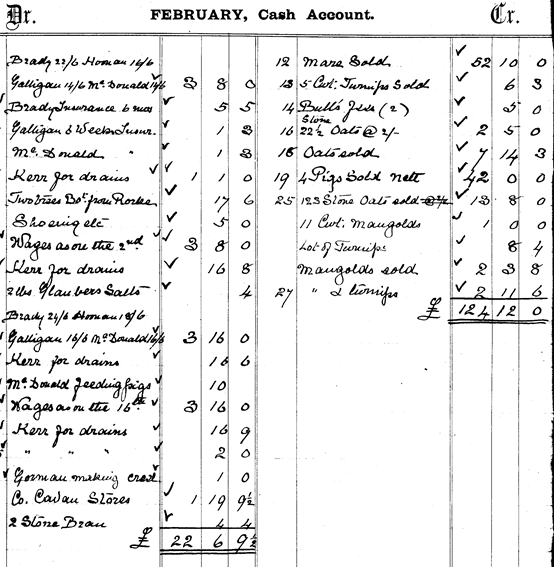 Dr. FEBRUARY, Cash Account. Cr.
Brady 22/6 Homan 16/6
Galligan 14/6 McDonald 14/6 3 8 0
Brady Insurance 6 mos 5 5
Galligan 8 Weeks Insur. 1 3
McDonald " 1 3
Kerr for drains 1 1 0
Two trees Bot. from Rorke 17 6
Shoeing etc 5 0
Wages as on the 2nd 3 8 0
Kerr for drains 16 8
2 lbs Glaubers Salts 4
Brady 24/6 Homan 18/6
Galligan 16/6 McDonald 16/6 3 16 0
Kerr for drains 16 6
McDonald feeding pigs 10
Wages as on the 16th 3 16 0
Kerr for drains 16 9
" " " 2 0
Gorman making creel 1 0
Co. Cavan Stores 1 19 9½
2 Stone Bran 4 4
£ 22 6 9½
12 Mare Sold 52 10 0
13 5 Cwt. Turnips Sold 6 3
14 Bull's fees (2) 5 0
Stone
16 22½ Oats @ 2/- 2 5 0
18 Oats sold 7 14 3
19 4 Pigs Sold nett 42 0 0
25 123 Stone Oats sold 13 8 0
11 Cwt. Mangolds 1 0 0
Lot of Turnips 8 4
Mangolds sold 2 3 8
27 " & turnips 2 11 6
£ 124 12 0